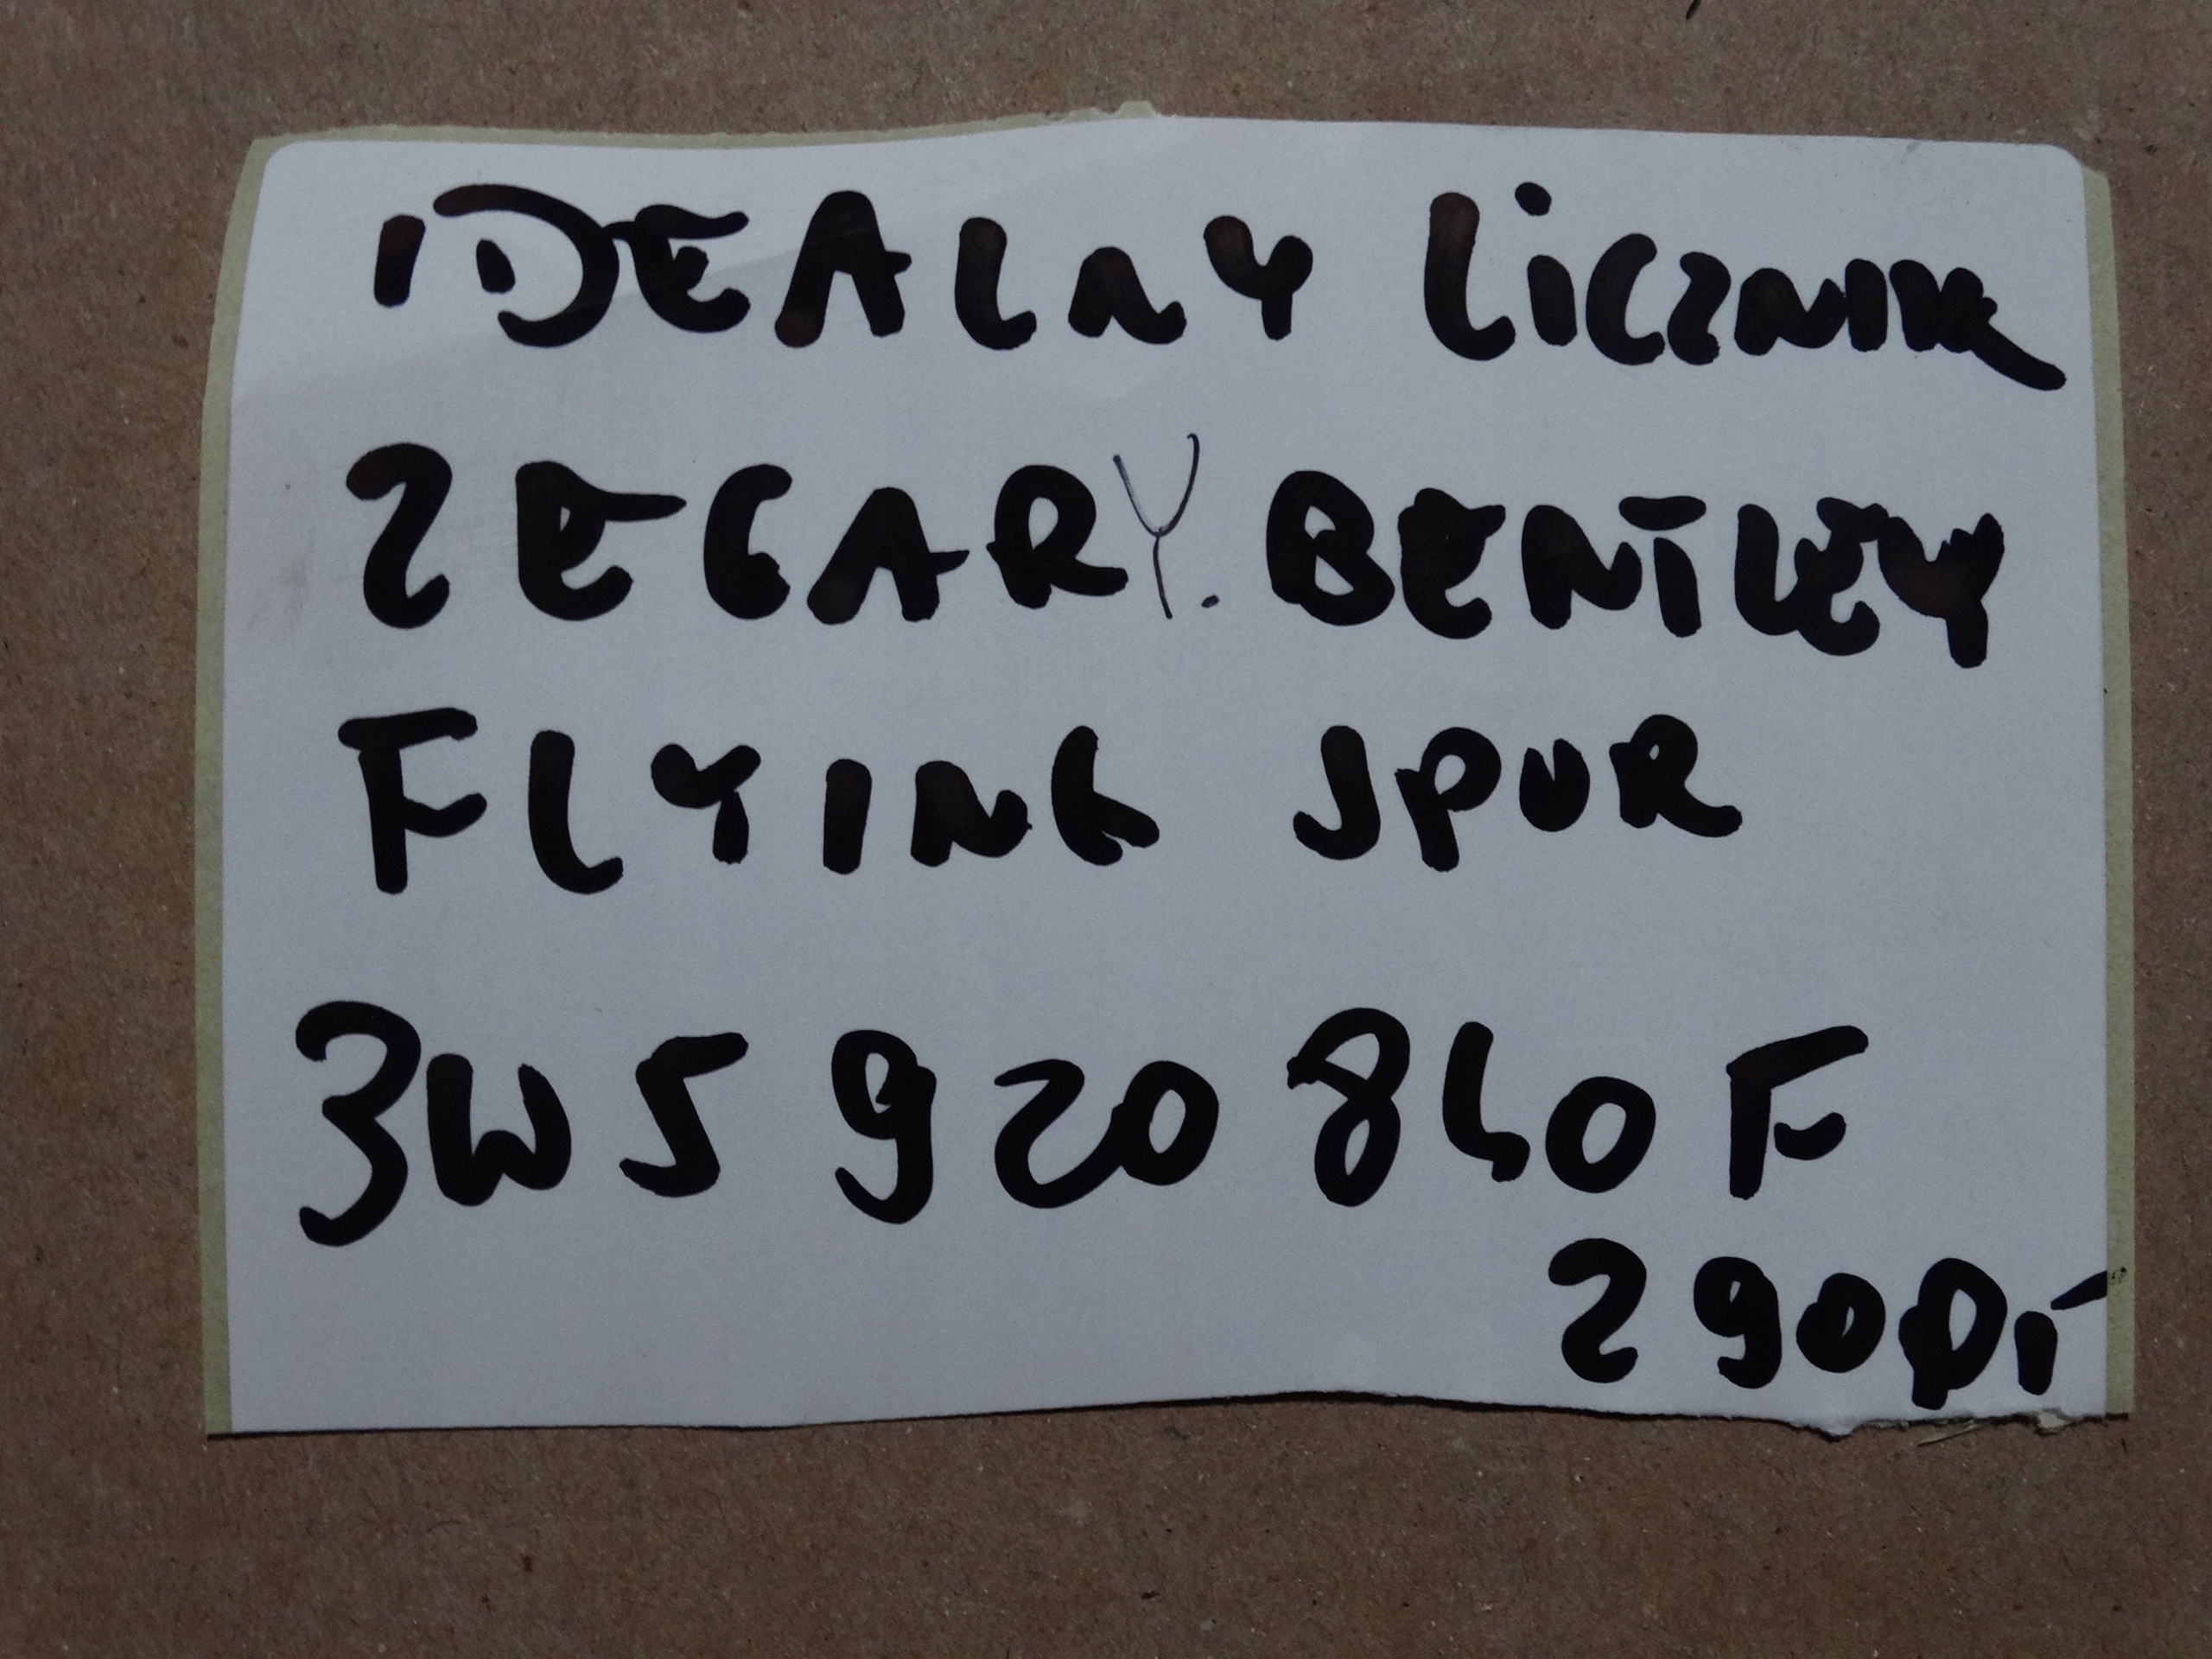 IDEALNY LICZNIK
ZEGARY. BENTLEY
FLYING SPUR
3W5 920 840 F